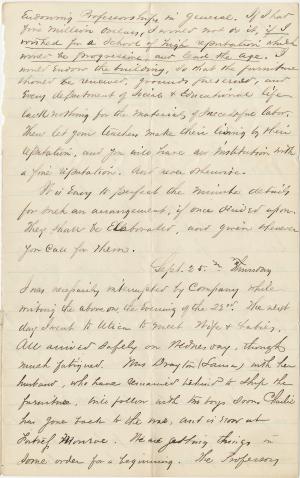 Endowing Professorships in General. If I had
five million dollars, I would not do it, if I
wished for a School of high reputation which
would be progressive and lead the age. I
would Endow the building, so that the furniture
should be renewed, grounds preserved, and
Every department of Social & Educational life
cost nothing for the materials, of successful labor.
Then let your teachers make their living by their
reputation, and you will have an Institution with
a fine reputation. And never otherwise.
It is Easy to perfect the minute details
for such an arrangement, if once decided upon.
They shall be Elaborated, and given whenever
you call for them.
Sept. 25th Thursday
I was necessarily interrupted by Company while
writing the above on the Evening of the 22d. The next
day I went to Utica to meet Wife & babies.
All arrived safely on Wednesday, though
much fatigued. Mrs Drayton (Laura) with her
husband, who have remained behind to ship the
furniture, will follow with the boys soon. Charlie
has gone back to the war, and is now at
Fortress Monroe. We are getting things in
some order for a beginning. The Professors